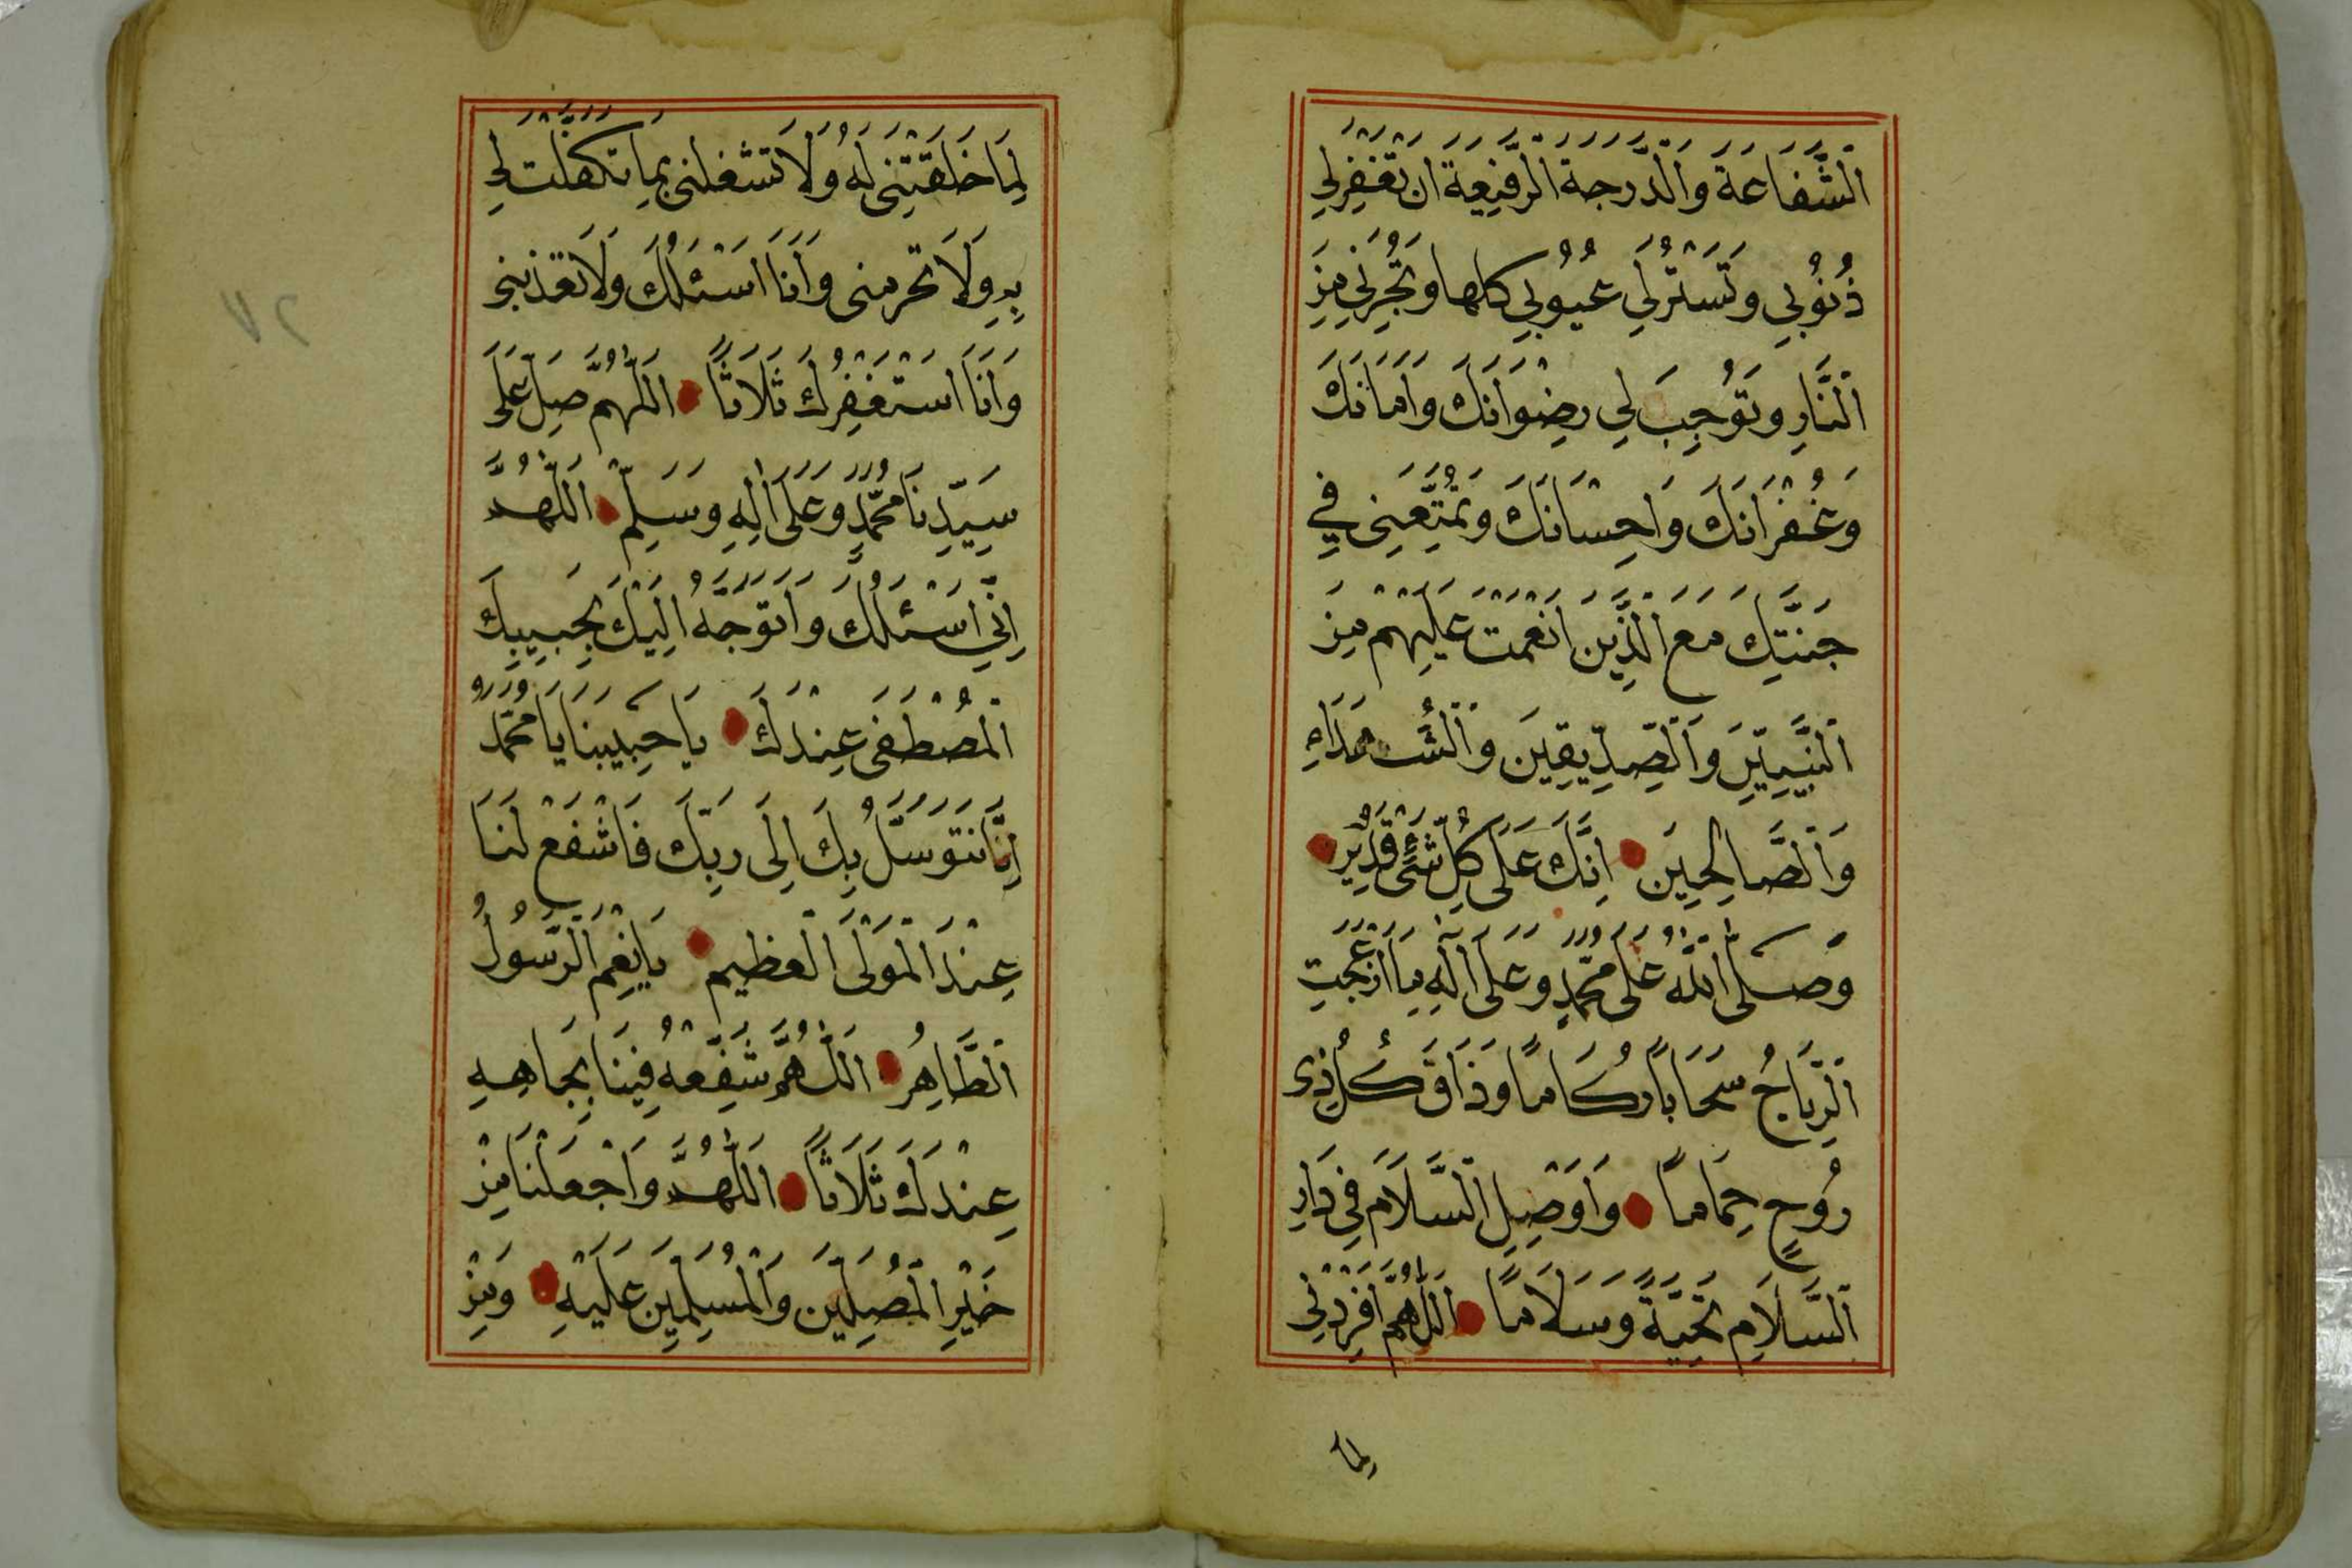 اَلشَّفَاعَةَ وَالدَّرَجَةَ الرَّفِيعَةَ اَنْ تَغْفِرَ لِي
ذُنُوبِي وَتَسْتُرَ لِي عُيُوبِي كُلَّهَا وَتُجِرَنِي مِنَ
النَّارِ وَتُوجِبَ لِي رِضْوَانَكَ وَاَمَانَكَ
وَغُفْرَانَكَ وَاِحْسَانَكَ وَتُمَتِّعَنِي فِي
جَنَّتِكَ مَعَ الَّذِينَ اَنْعَمْتَ عَلَيْهِمْ مِنَ
النَّبِيِّينَ وَالصِّدِّيقِينَ وَالشُّهَدَاءِ
وَالصَّالِحِينَ اِنَّكَ عَلَى كُلِّ شَيْءٍ قَدِيرٌ
وَصَلَّى اللّٰهُ عَلَى مُحَمَّدٍ وَعَلَى اٰلِهِ مَا اَزْعَجَتِ
الرِّيَاحُ سَحَابًا رُكَامًا وَذَاقَ كُلُّ ذِى
رُوحٍ حِمَامًا وَاَوْصِلِ السَّلَامَ فِي دَارِ
السَّلَامِ تَحِيَّةً وَسَلَامًا اَللّٰهُمَّ اَفْرِدْنِي
لِمَا
لِمَا خَلَقْتَنِي لَهُ وَلَا تَشْغَلْنِي بِمَا تَكَفَّلْتَ لِي
بِهِ وَلَا تَحْرِمْنِى وَاَنَا اَسْئَلُكَ وَلَا تُعَذِّبْنِى
وَاَنَا اَسْتَغْفِرُكَ ثَلَاثًا اَللّٰهُمَّ صَلِّ عَلَى
سَيِّدِنَا مُحَمَّدٍ وَعَلَى اٰلِهِ وَسَلِّمْ اَللّٰهُمَّ
اِنِّي اَسْئَلُكَ وَاَتَوَجَّهُ اِلَيْكَ بِحَبِيبِكَ
الْمُصْطَفَى عِنْدَكَ يَا حَبِيبَنَا يَا مُحَمَّدُ
اِنَّا نَتَوَسَّلُ بِكَ اِلَى رَبِّكَ فَاشْفَعْ لَنَا
عِنْدَ الْمَوْلَى الْعَظِيمِ يَا نِعْمَ الرَّسُولُ
الطَّاهِرُ اَللّٰهُمَّ شَفِّعْهُ فِينَا بِجَاهِهِ
عِنْدَكَ ثَلَاثًا اَللّٰهُمَّ وَاجْعَلْنَا مِنْ
خَيْرِ الْمُصَلِّينَ وَالْمُسَلِّمِينَ عَلَيْهِ وَمِنْ
٢٧